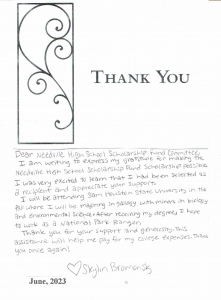 THANK YOU
Dear Needville High School Scholarship Fund Committee,
I am writing to express my gratitude for making the
Needville High School Scholarship Fund Scholarship possible.
I was very excited to learn that I had been selected as
a recipient and appreciate your support.
I will be attending Sam Houston State University in the
fall where I will be majoring in with minors in biology
and environmental science. After receiving my degree, I hope
to work as a National Park Ranger.
Thank you for your support and generosity. This
assistance will help me pay for my college expenses. Thank
you once again!
June, 2023